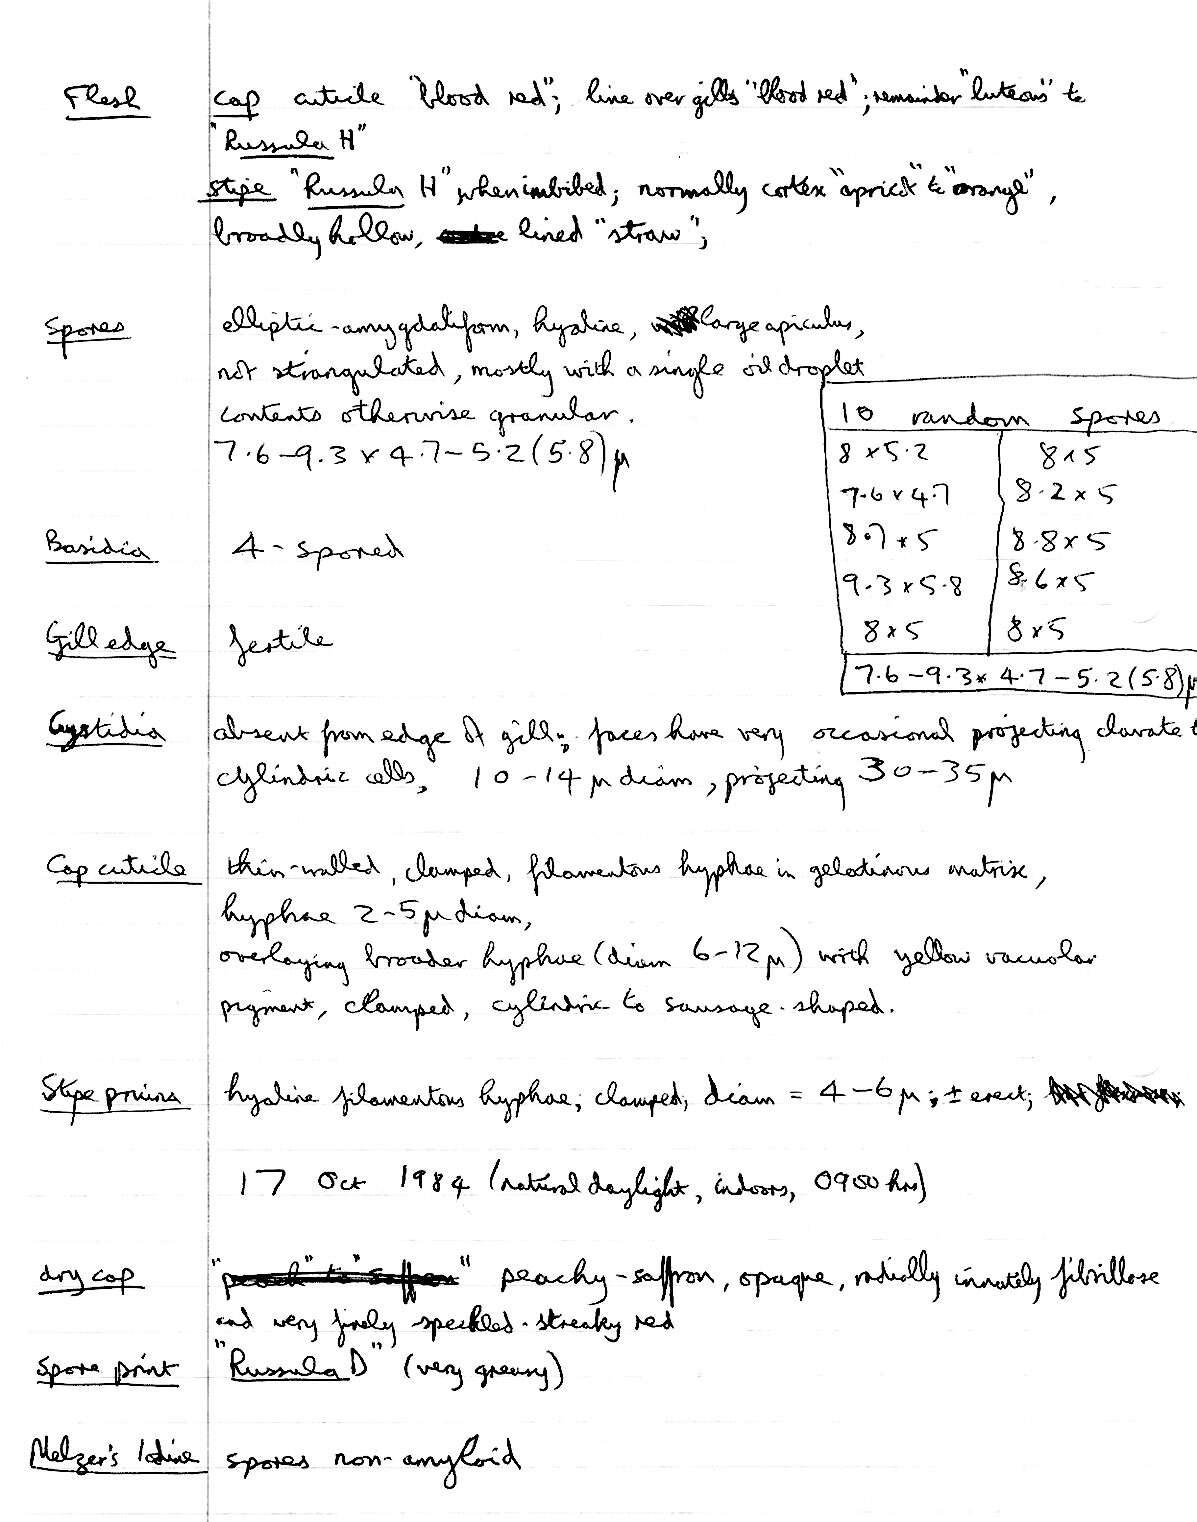 Flesh cap cuticle "blood red"; line over gills "blood red"; remainder "luteous" to
"Russula H"
stipe "Russula H" when imbibed; normally cortex "apricot" to "orange",
broadly hollow, lined "straw";
Spores elliptic-amygdaliform, hyaline, large apiculus,
not strangulated, mostly with a single oil droplet
contents otherwise granular.
7.6-9.3 x 4.7-5.2(5.8)μ
10 random spores
8 x 5.2 8 x 5
7.6 x 4.7 8.2 x 5
8.7 x 5 8.8 x 5
9.3 x 5.8 8.6 x 5
8 x 5 8 x 5
7.6-9.3 x 4.7-5.2(5.8)μ
Basidia 4-spored
Gill edge fertile
Cystidia absent from edge of gill; faces have very occasional projecting clavate t
cylindric cells, 10-14 μ diam, projecting 30-35μ
Cap cuticle thin-walled, clamped, filamentous hyphae in gelatinous matrix,
hyphae 2-5μ diam,
overlaying broader hyphae (diam 6-12μ) with yellow vacuolar
pigment, clamped, cylindric to sausage-shaped.
Stipe pruina hyaline filamentous hyphae, clamped, diam = 4-6μ; ± erect;
17 Oct 1984 (natural daylight, indoors, 0900 hrs)
dry cap "peach" to "saffron" peachy-saffron, opaque, radially innately fibrillose
and very finely speckled-streaky red
Spore print "Russula D" (very greasy)
Melzer's Iodine spores non-amyloid